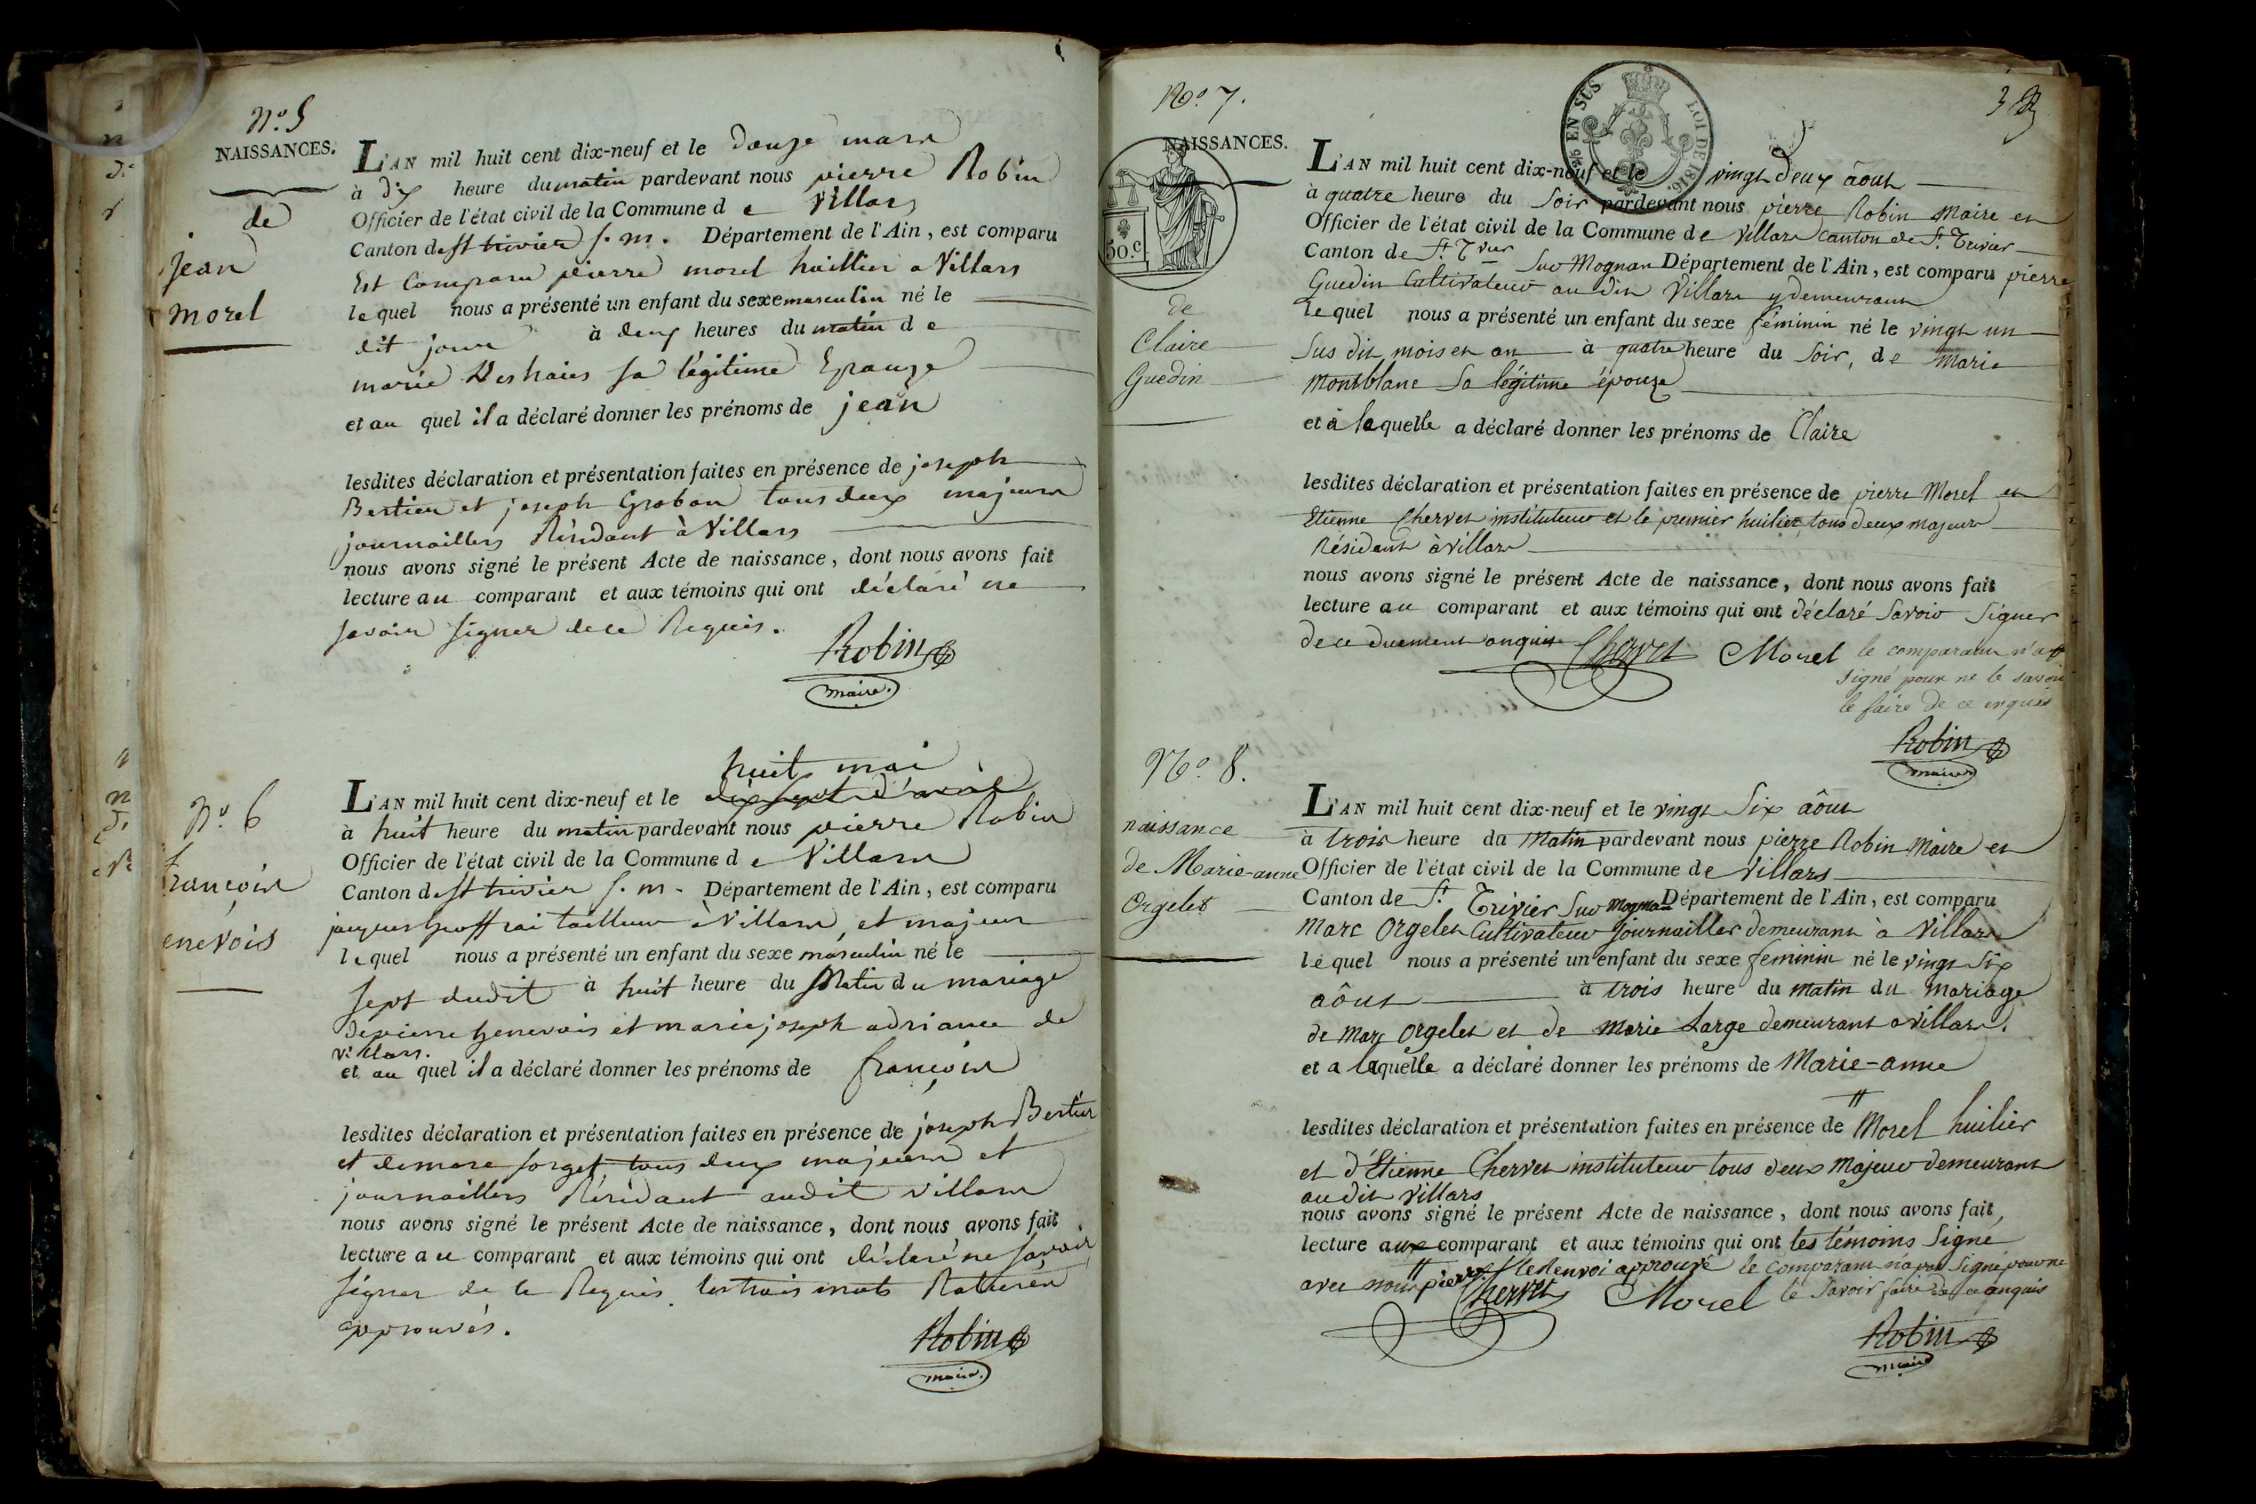 N.º 5
NAISSANCES.
de
jean
morel
L'AN mil huit cent dix-neuf et le douze mars
à dix heure du matin pardevant nous pierre Robin
Officier de l'état civil de la Commune d e Villars
Canton de st trivier s. m. Département de l'Ain, est comparu
Est Comparu pierre morel huillier a Villars
le quel nous a présenté un enfant du sexe masculin né le
dit jour à deux heures du matin d e
marie Deshaies sa légitime Epouze
et au quel il a déclaré donner les prénoms de jean
lesdites déclaration et présentation faites en présence de joseph
Bertier et joseph Grobon tous deux majeurs
journaillers Résidant à Villars
nous avons signé le présent Acte de naissance, dont nous avons fait
lecture au comparant et aux témoins qui ont déclaré ne
savoir signer de ce Requis.
Robin
maire.
N.º 6
françois
enevois
huit mai
L'AN mil huit cent dix-neuf et le dix sept d'avril
à huit heure du matin pardevant nous pierre Robin
Officier de l'état civil de la Commune d e Villars
Canton de st trivier s. m. Département de l'Ain, est comparu
jacques Geoffrai tailleur à Villars, et majeur
le quel nous a présenté un enfant du sexe masculin né le
sept dudit à huit heure du Matin du mariage
de pierre Genevois et marie joseph adriance de
villars.
et au quel il a déclaré donner les prénoms de françois
lesdites déclaration et présentation faites en présence de joseph Bertier
et demare forget tous deux majeurs et
journaillers Résidant audit villars
nous avons signé le présent Acte de naissance, dont nous avons fait
lecture au comparant et aux témoins qui ont déclaré ne savoir
signer de ce Requis les trois mots Raturés
approuvés.
Robin
maire.
N.º 7.
3
EN SUS
LOI DE 1816.
NAISSANCES.
50.c
de
Claire
Guedin
L'AN mil huit cent dix-neuf et le vingt deux âout
à quatre heure du soir pardevant nous pierre Robin Maire et
Officier de l'état civil de la Commune de Villars canton de St Trivier
Canton de St Tvier Sur Mognan Département de l'Ain, est comparu pierre
Guedin Cultivateur au dit Villars y demeurant
le quel nous a présenté un enfant du sexe féminin né le vingt un
sus dit mois et an à quatre heure du soir, de Marie
Montblanc sa légitime épouze
et à la quelle a déclaré donner les prénoms de Claire
lesdites déclaration et présentation faites en présence de pierre Morel et
Etienne Chervet instituteur et le premier huilier, tous deux majeurs
Résident à villars
nous avons signé le présent Acte de naissance, dont nous avons fait
lecture au comparant et aux témoins qui ont déclaré savoir signer
de ce duement enquis Chervet Morel le comparant n'a
signé pour ne le savoir
le faire de ce enquis
Robin
maire
N.º 8.
naissance
de Marie-anne
Orgelet
L'AN mil huit cent dix-neuf et le vingt six âout
à trois heure du Matin pardevant nous pierre Robin Maire et
Officier de l'état civil de la Commune de Villars
Canton de St Trivier Sur Mognan Département de l'Ain, est comparu
Marc Orgelet Cultivateur journailler demeurant à Villars
le quel nous a présenté un enfant du sexe feminin né le vingt six
aôut à trois heure du matin du mariage
de Marc Orgelet et de Marie Large demeurant a villars.
et a laquelle a déclaré donner les prénoms de Marie-anne
lesdites déclaration et présentation faites en présence de Morel huilier
et d'Etienne Chervet instituteur tous deux Majeur demeurant
au dit Villars
nous avons signé le présent Acte de naissance, dont nous avons fait
lecture aux comparant et aux témoins qui ont les témoins signé
avec nous pierre le Renvoi approuvé le comparant n'a pas signé pour ne
Chervet Morel le savoir faire de ce enquis
Robin
maire